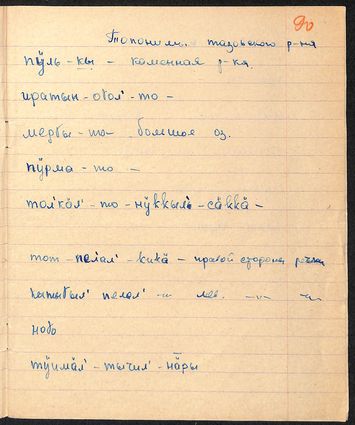 90
Топонимы тазовского р-на
пӱль-кы - каменная р-ка.
иратын-оӄол'-то -
мердбы-то - большое оз.
пӱрма-то -
толкӧл'-то-нӱккылъ-сӓккӓ -
тот-пелал'-кикӓ - правой стороны речка
пелал' -"- лев. -"- -"-
тӱймӓл'-тычил'-нӓры